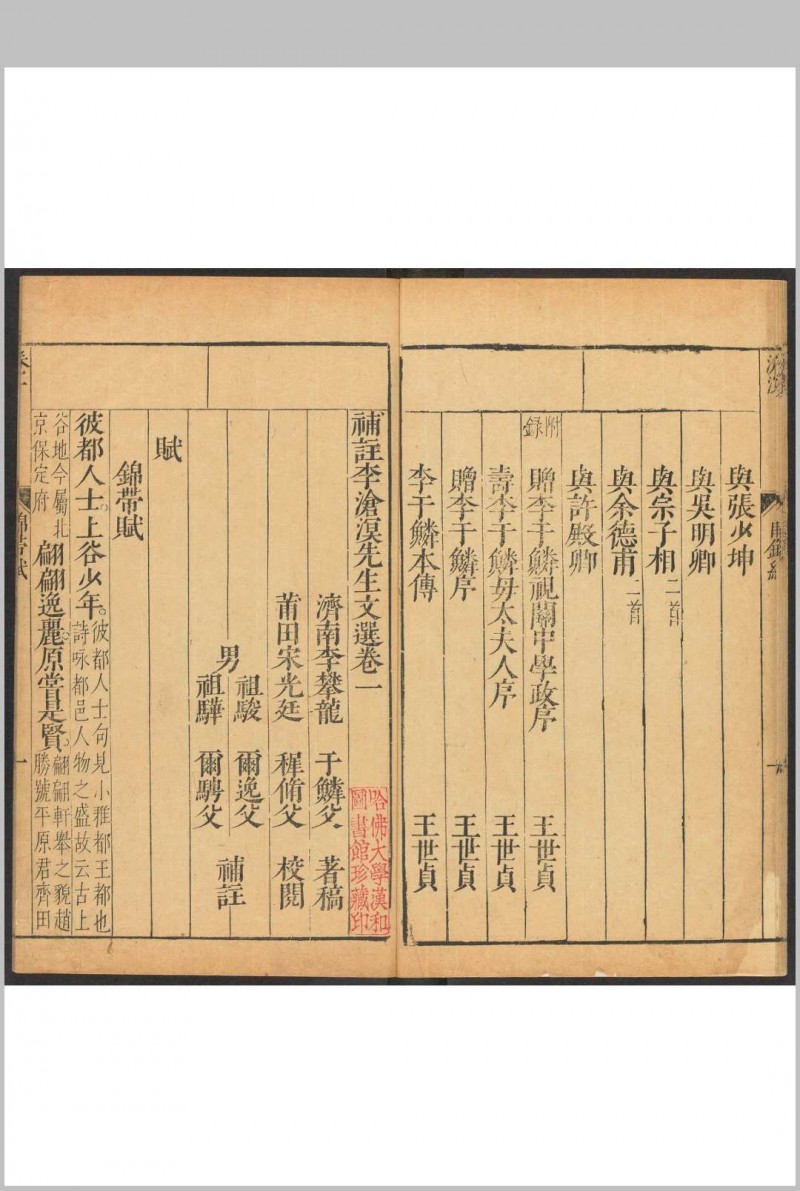 與張少坤
與吳明卿
與宗子相二首
與余德甫二首
與許殿卿
附錄
贈李于鱗視關中學政序 王世貞
壽李于鱗母太夫人序 王世貞
贈李于鱗序 王世貞
李于鱗本傳 王世貞
補註李滄溟先生文選卷一
哈佛大學漢和圖書館珍藏印
濟南李攀龍 于鱗父 著稿
莆田宋光廷 穉脩父 校閱
男 祖駿 爾逸父
祖驊 爾騁父 補註
賦
錦帶賦
彼都人士。上谷少年。彼都人士句見小雅都王都也
詩咏都邑人物之盛故云古上
谷地今屬北
京保定府
翩翩逸麗。原嘗是賢。翩翩軒舉之貌趙
勝號平原君齊田
錦帶賦
一